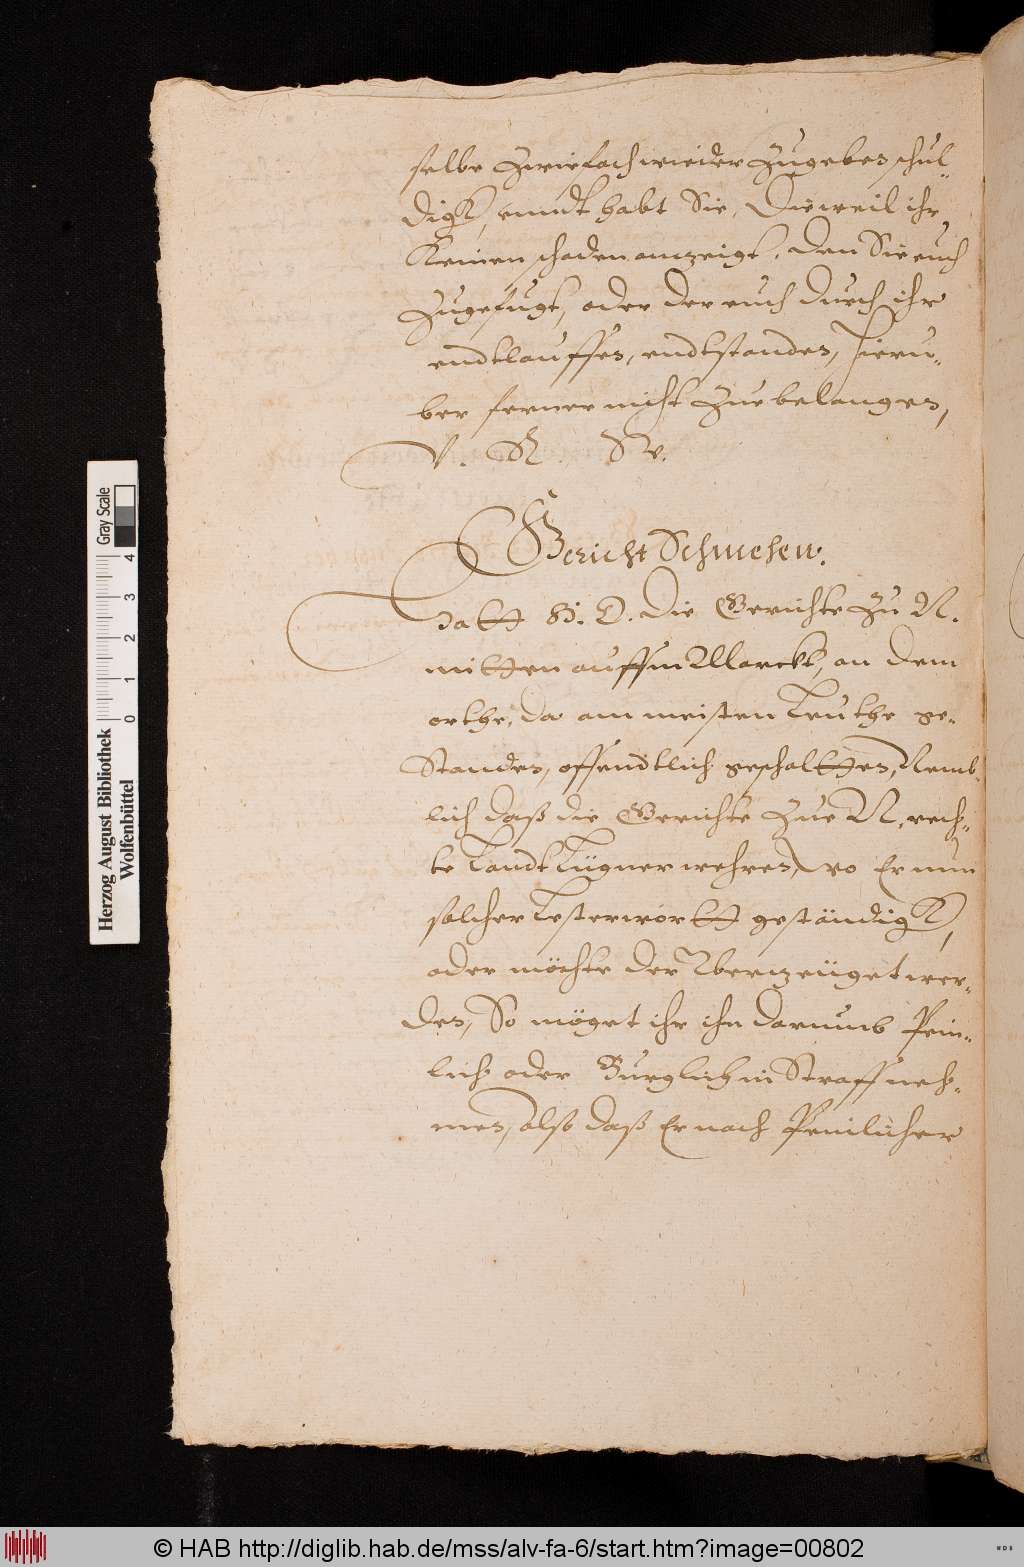 selbe Zwiefach wieder Zugeben schul-
digk, unndt habt Sie, Dieweil ihr
Keinen schaden anzeigt, den Sie euch
Zugefügt, oder der euch durch ihr
endtlauffen, endtstanden, hieru-
ber ferner nicht Zue belangen,
V. R. W.
Gericht Schmehen.
Hatt H. D. die Gerichte Zu N.
mitten auffm Marckt, an dem
orthe, da am meisten Leuthe ge-
Standen, offendtlich geschaltten, Nemb-
lich daß die Gerichte Zue N. rech-
te Landt Lügner wehren, wo Er nun
solcher Lesterwortt geständigk,
oder möchte der Uberzeüget wer-
den, So möget ihr ihn darumb Pein-
lich oder Burglich in Straff neh-
men, also daß Er nach Peinlicher
Gray Scale
0 1 2 3 4
Herzog August Bibliothek
Wolfenbüttel
© HAB http://diglib.hab.de/mss/alv-fa-6/start.htm?image=00802
WDB